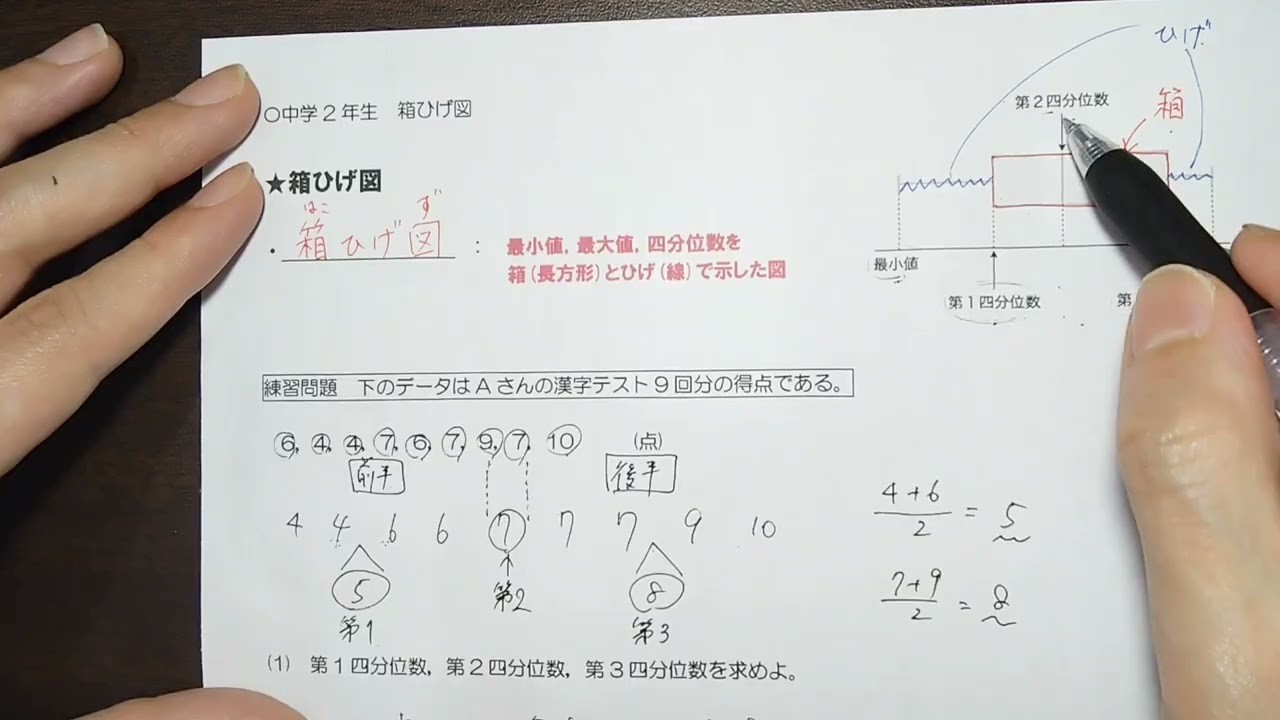 ○中学2年生 箱ひげ図
★箱ひげ図
はこ ず
・箱ひげ図 : 最小値，最大値，四分位数を
箱（長方形）とひげ（線）で示した図
ひげ
第2四分位数
箱
最小値
第1四分位数
第
練習問題 下のデータはAさんの漢字テスト9回分の得点である。
6, 4, 4, 7, 6, 7, 9, 7, 10 （点）
前半 後半
4 4 6 6 7 7 7 9 10
5 第2 8
第1 第3
4+6/2 = 5
7+9/2 = 8
(1) 第1四分位数，第2四分位数，第3四分位数を求めよ。